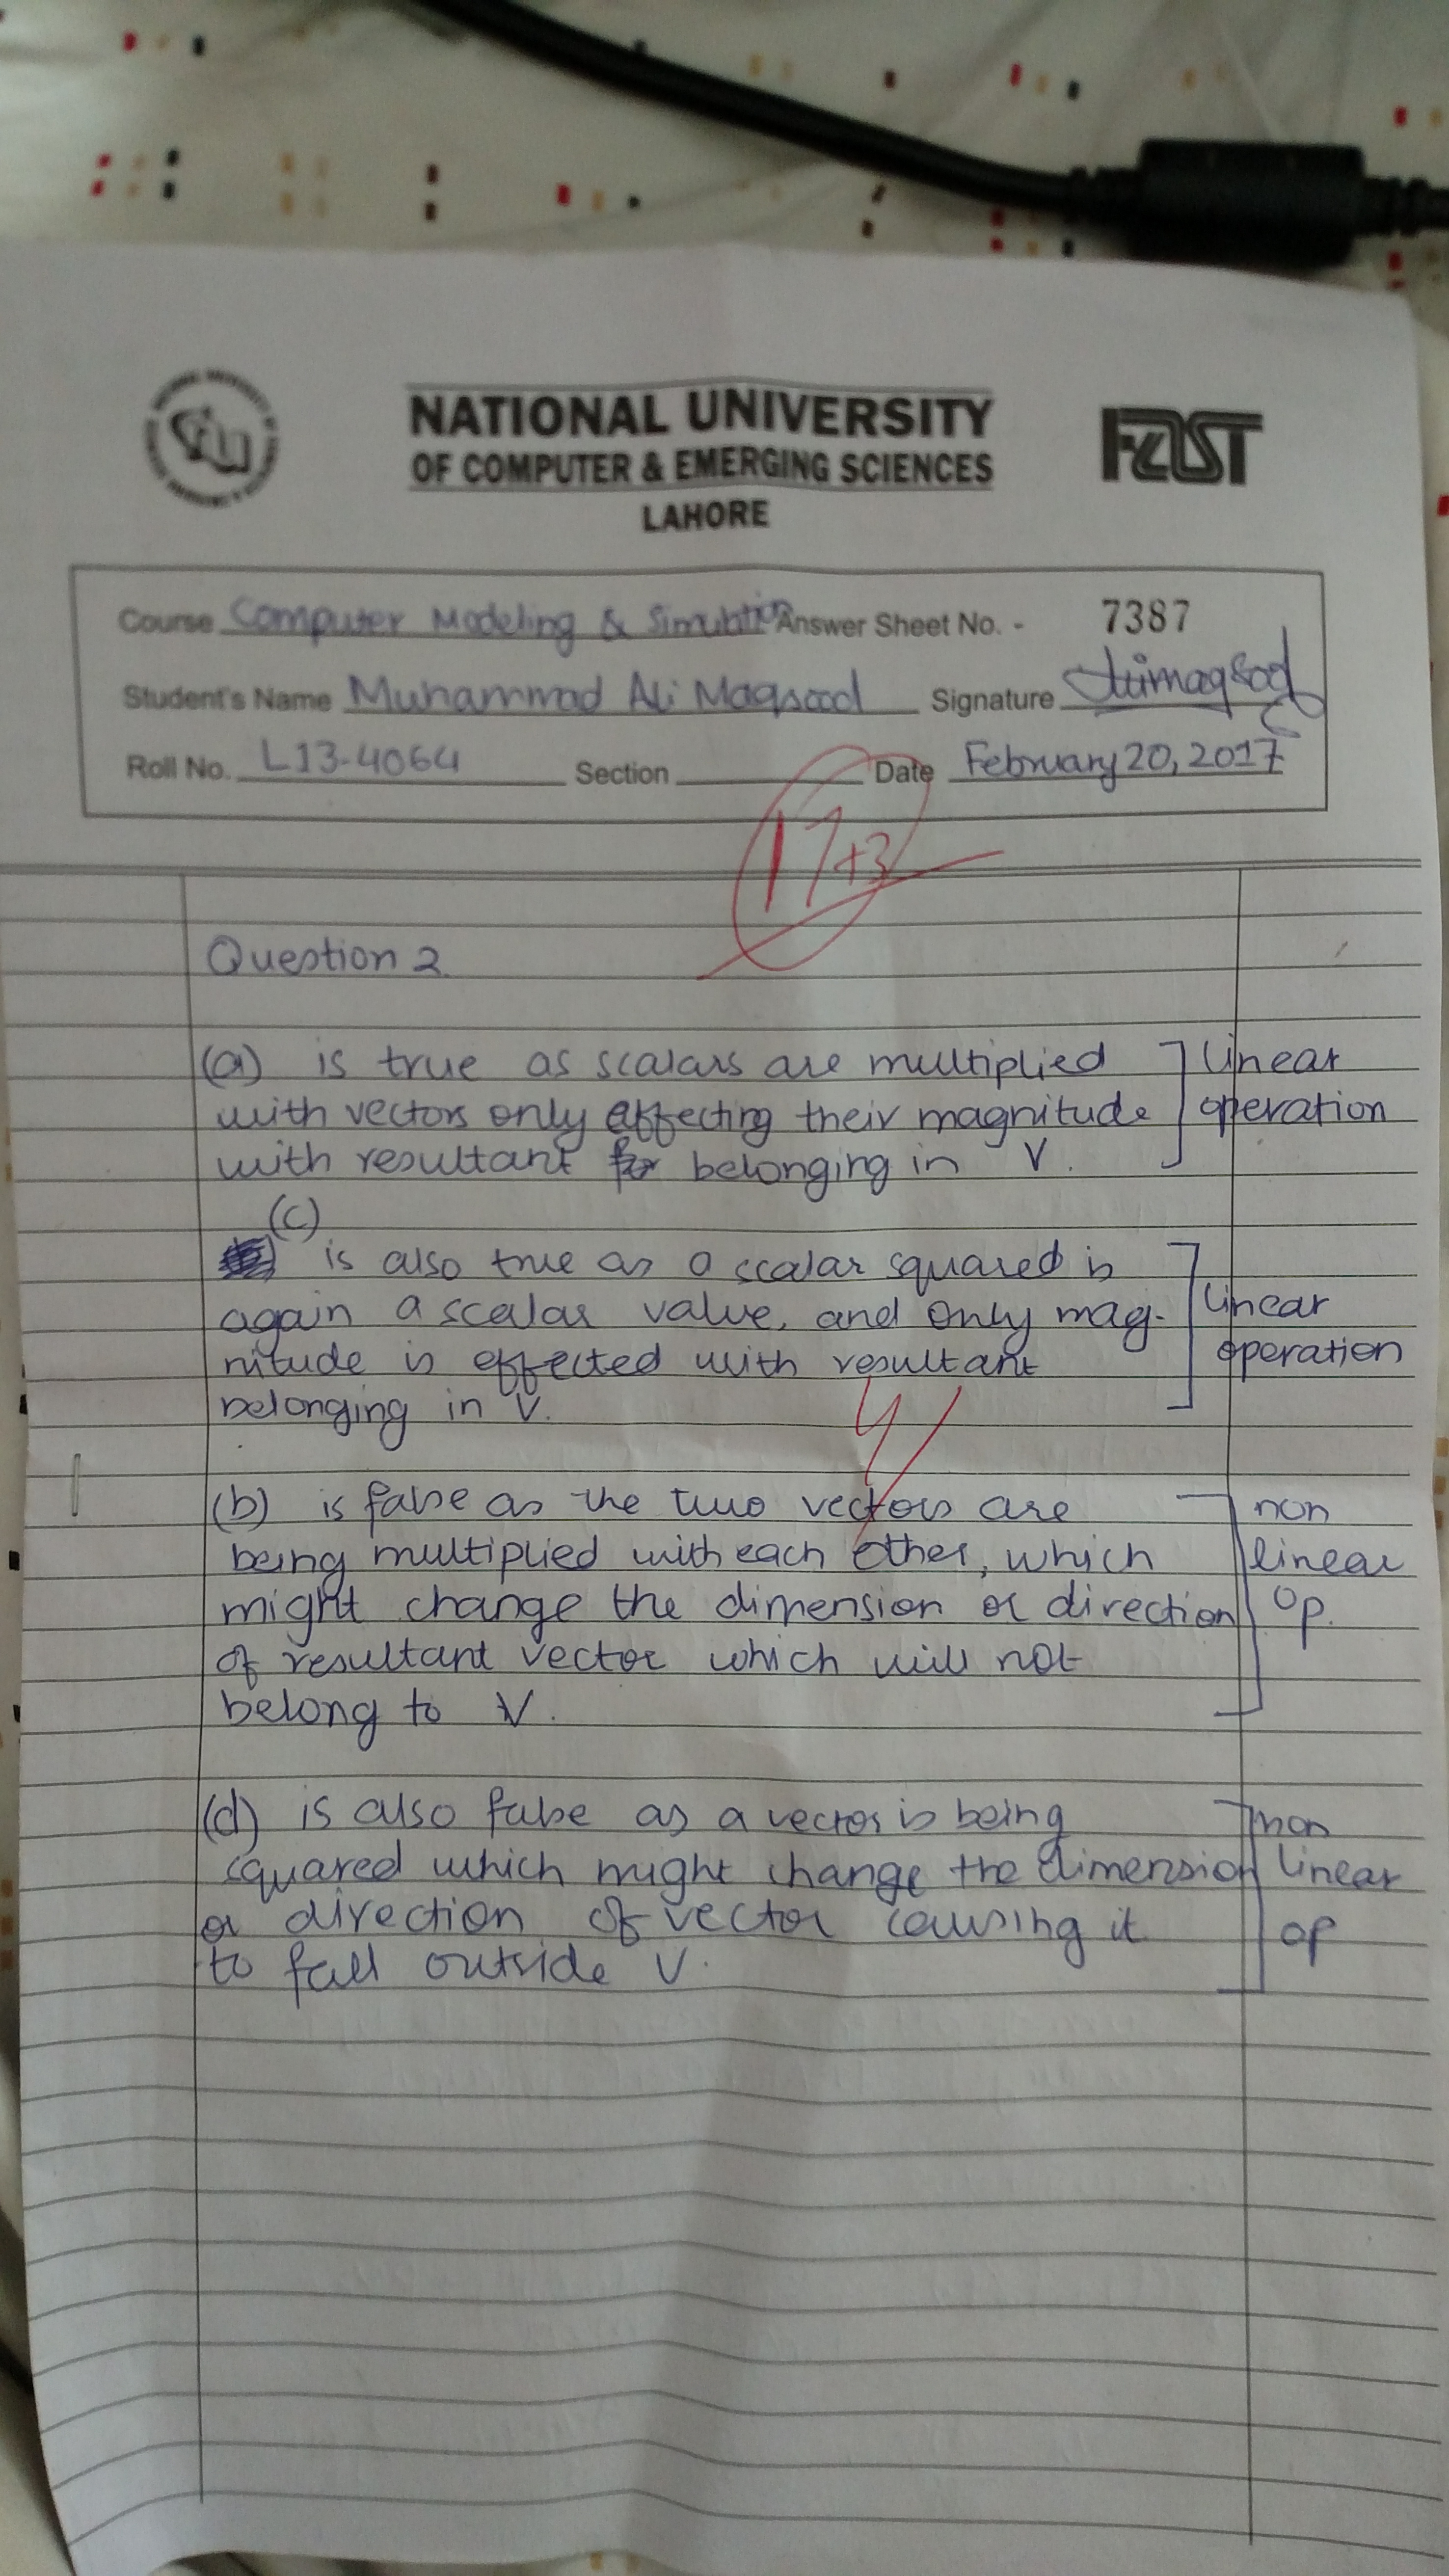 NATIONAL UNIVERSITY
OF COMPUTER & EMERGING SCIENCES
LAHORE
FAST
Course Computer Modeling & Simulation Answer Sheet No. - 7387
Student's Name Muhammad Ali Maqsood Signature
Roll No. L13-4064 Section Date February 20, 2017
17+3
Question 2
(a) is true as scalars are multiplied linear
with vectors only affecting their magnitude operation
with resultant belonging in V.
(c)
is also true as a scalar squared is
again a scalar value, and only mag- linear
nitude is effected with resultant operation
belonging in V.
4
(b) is false as the two vectors are non
being multiplied with each other, which linear
might change the dimension or direction op.
of resultant vector which will not
belong to V.
(d) is also false as a vector is being non
squared which might change the dimension linear
or direction of vector causing it op
to fall outside V.